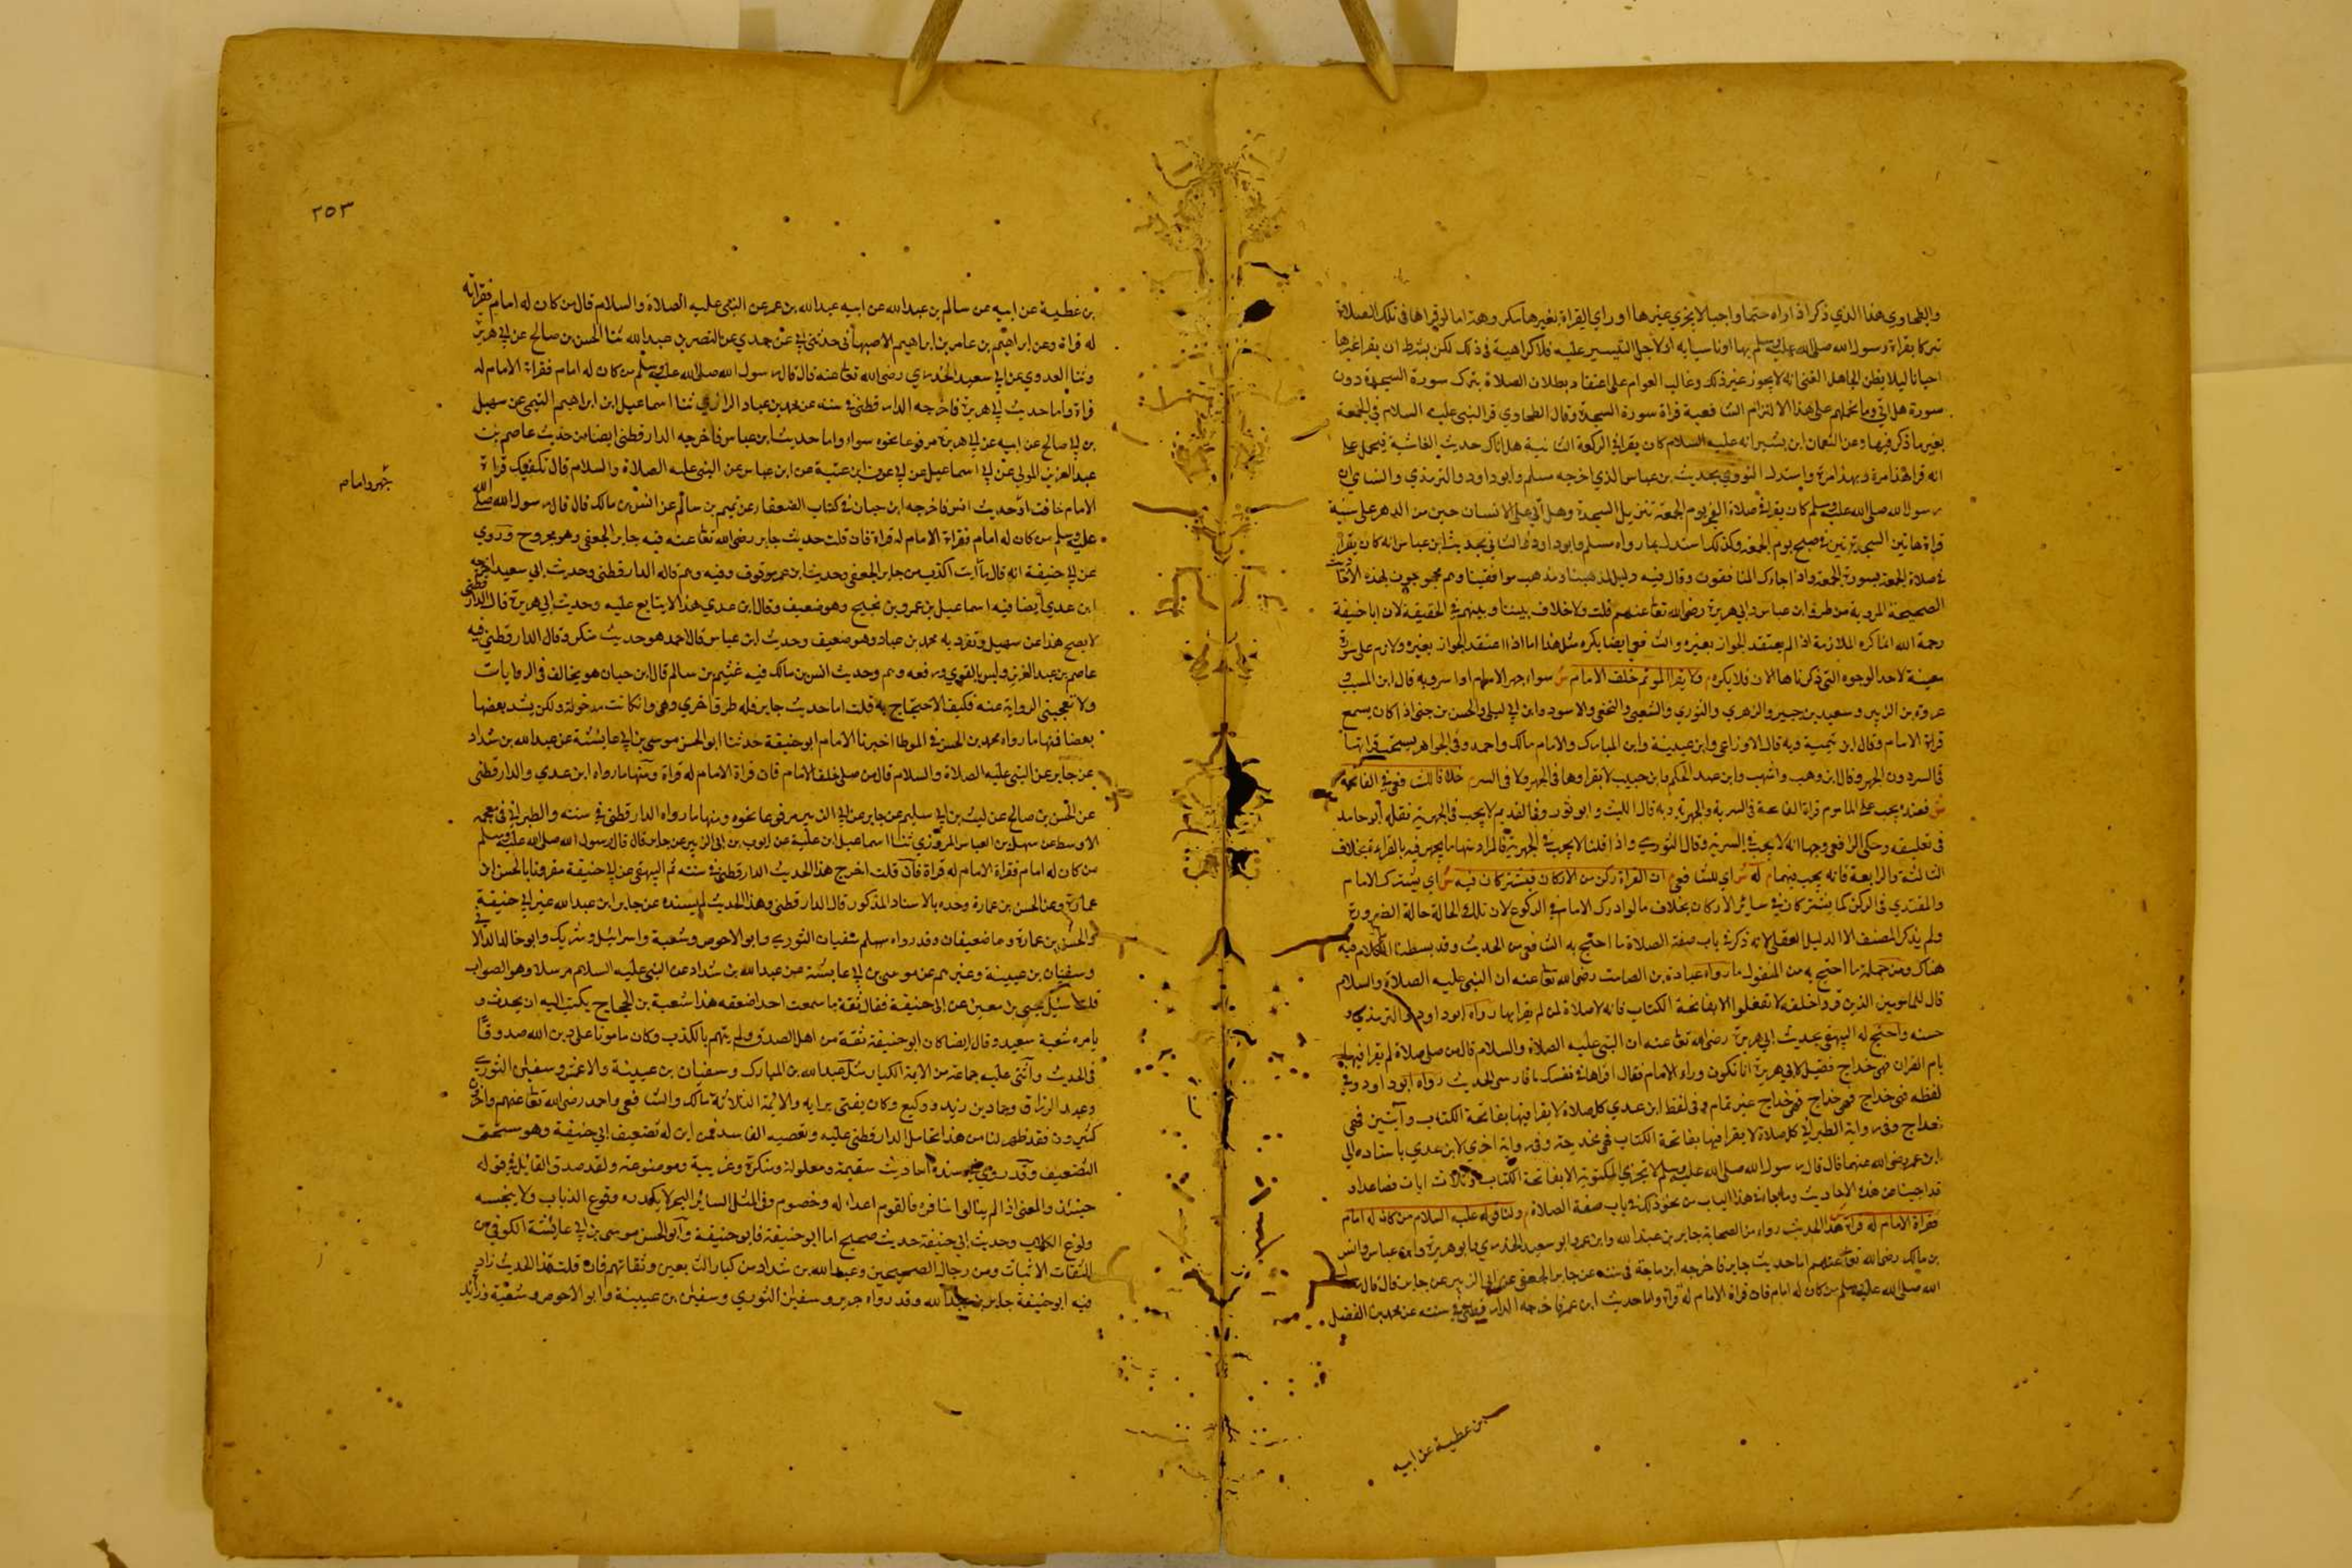 والطحاوي هذا الذي ذكر اذا راه حتما واجبا لا يجزي غيرها او راي القراة بغيرها مكروهة اما لو قراها في تلك الصلاة
تبركا بقراة رسول الله صلى الله عليه وسلم بها او تاسيا به او لاجل التيسير عليه فلا كراهية في ذلك لكن بشرط ان يقرا غيرها
احيانا ليلا يظن الجاهل الغبي انه لا يجوز غير ذلك وغالب العوام على اعتقاد بطلان الصلاة بترك سورة السجدة دون
سورة هل اتى وما حملهم على هذا الا التزام الشافعية قراة سورة السجدة وقال الطحاوي قرا النبي عليه السلام في الجمعة
بغير ما ذكر فيها وعن النعمان ابن بشير انه عليه السلام كان يقرا في الركعة الثانية هل اتاك حديث الغاشية فيحمل على
انه قرا هذا مرة وبهذا مرة واستدل النووي بحديث بن عباس الذي اخرجه مسلم وابو داود والترمذي والنساي ان
رسول الله صلى الله عليه وسلم كان يقرا في صلاة الفجر يوم الجمعة تنزيل السجدة وهل اتى على الانسان حين من الدهر على سنية
قراة هاتين السجدتين في صبح يوم الجمعة وكذلك استدل بما رواه مسلم وابو داود والنسائي بحديث ابن عباس انه كان يقرا
في صلاة الجمعة بسورة الجمعة واذا جاءك المنافقون وقال فيه دليل لمذهبنا ومذهب موافقينا وهم محجوجون بهذه الاحاديث
الصحيحة المروية من طرق ابن عباس وابي هريرة رضى الله تعا عنهم قلت ولا خلاف بيننا وبينهم في الحقيقة لان ابا حنيفة
رحمة الله انما كره الملازمة اذا لم يعتقد الجواز بغيره والشافعي ايضا يكره مثل هذا اما اذا اعتقد الجواز بغيره ولازم على سورة
معينة لاحد الوجوه التي ذكرناها الان فلا يكره م ولا يقرا الموتم خلف الامام ش سواء جهر الامام او اسر وبه قال ابن المسيب و
عروة بن الزبير وسعيد بن جبير والزهري والثوري والشعبي والنخعي والاسود وابن ابي ليلى والحسن بن حي اذا كان يسمع
قراة الامام وقال ابن تيمية وبه قال الاوزاعي وابن عيينة وابن المبارك والامام مالك واحمد وفي الجواهر يستحب قراتها
في السر دون الجهر وقال ابن وهب واشهب وابن عبد الحكم وابن حبيب لا يقراوها في الجهر ولا في السر م خلافا للشافعي في الفاتحة
ش فعنده يجب على الماموم قراة الفاتحة في السرية والجهرية وبه قال الليث وابو ثور وفي القديم لا يجب في الجهرية نقله ابو حامد
في تعليقه وحكى الرافعي وجها انه لا يجب في السرية وقال الثوري واذا قلنا لا يجب في الجهرية فالمراد منها ما يجهر فيه بالقراءة بخلاف
الثالثة والرابعة فانه يجب فيهما م له ش اي للشافعي م ان القراة ركن من الاركان فيشتركان فيه ش اي يشترك الامام
والمقتدي في الركن كما يشتركان في سائر الاركان بخلاف ما لو ادرك الامام في الركوع لان تلك الحالة حالة الضرورة
ولم يذكر المصنف الا الدليل العقلي لانه ذكر في باب صفة الصلاة ما احتج به الشافعي من الحديث وقد بسطنا الكلام فيه
هناك ومن جملة ما احتج به من المنقول ما رواه عبادة بن الصامت رضى الله تعا عنه ان النبي عليه الصلاة والسلام
قال للمامومين الذين قرؤا خلفه لا تفعلوا الا بفاتحة الكتاب فانه لا صلاة لمن لم يقرا بها رواه ابو داود والترمذي و
حسنه واحتج له البيهقي بحديث ابي هريرة رضى الله تعا عنه ان النبي عليه الصلاة والسلام قال من صلى صلاة لم يقرا فيها
بام القران فهي خداج فقيل لابي هريرة انا نكون وراء الامام فقال اقراها في نفسك يا فارسي الحديث رواه ابو داود وفي
لفظه فهي خداج فهي خداج فهي خداج غير تمام وفي لفظ ابن عدي كل صلاة لا يقرا فيها بفاتحة الكتاب وآيتين فهي
خداج وفي رواية الطبراني كل صلاة لا يقرا فيها بفاتحة الكتاب فهي مخدجة وفي رواية اخري لابن عدي باسناده الى
ابن عمر رضى الله عنهما قال قال رسول الله صلى الله عليه وسلم لا تجزي المكتوبة الا بفاتحة الكتاب وثلاث ايات فصاعدا و
قد اجبنا عن هذه الاحاديث وما جاء في هذا الباب من نحو ذلك في باب صفة الصلاة م ولنا قوله عليه السلام من كان له امام
فقراة الامام له قراة ش هذا الحديث رواه من الصحابة جابر بن عبد الله وابن عمر وابو سعيد الخدري وابو هريرة وابن عباس وانس
بن مالك رضى الله تعا عنهم اما حديث جابر فاخرجه ابن ماجة في سننه عن جابر الجعفي عن ابي الزبير عن جابر قال قال رسول
الله صلى الله عليه وسلم من كان له امام فان قراة الامام له قراة واما حديث ابن عمر فاخرجه الدار قطني في سننه عن محمد بن الفضل
بن عطية عن ابيه
٢٥٣
بن عطية عن ابيه عن سالم بن عبد الله عن ابيه عبد الله بن عمر عن النبي عليه الصلاة والسلام قال من كان له امام فقراته
له قراة وعن ابراهيم بن عامر بن ابراهيم الاصبهاني حدثني ابي عن جدي عن النضر بن عبد الله ثنا الحسن بن صالح عن ابي هرون
وثنا العدوي عن ابي سعيد الخدري رضى الله تعا عنه قال قال رسول الله صلى الله عليه وسلم من كان له امام فقراة الامام له
قراة واما حديث ابي هريرة فاخرجه الدار قطني في سننه عن محمد بن عباد الرازي ثنا اسماعيل ابن ابراهيم التيمي عن سهيل
بن ابي صالح عن ابيه عن ابي هريرة مرفوعا نحوه سواء واما حديث ابن عباس فاخرجه الدار قطني ايضا من حديث عاصم بن
عبد العزيز المدني عن ابي اسماعيل عن ابي عون ابن عتبة عن ابن عباس عن النبي عليه الصلاة والسلام قال تكفيك قراة
جهر وامام
الامام خافت او حديث انس فاخرجه ابن حبان في كتاب الضعفا عن غنيم بن سالم عن انس بن مالك قال قال رسول الله صلى الله
عليه وسلم من كان له امام فقراة الامام له قراة فان قلت حديث جابر رضى الله تعا عنه فيه جابر الجعفي وهو مجروح وروي
عن ابي حنيفة انه قال ما رايت اكذب من جابر الجعفي وحديث ابن عمر موقوف وفيه وهم قاله الدار قطني وحديث ابي سعيد اخرجه
ابن عدي ايضا فيه اسماعيل بن عمرو بن نجيح وهو ضعيف وقال ابن عدي هذا لا يتابع عليه وحديث ابي هريرة قال الدار قطني
لا يصح هذا عن سهيل وتفرد به محمد بن عباد وهو ضعيف وحديث ابن عباس قال احمد هو حديث منكر وقال الدار قطني فيه
عاصم بن عبد العزيز وليس بالقوي ورفعه وهم وحديث انس بن مالك فيه غنيم بن سالم قال ابن حبان هو يخالف في الروايات
ولا تعجبني الرواية عنه فكيف الاحتجاج به قلت اما حديث جابر فله طرق اخري وهي وان كانت مدخولة ولكن يشد بعضها
بعضا فمنها ما رواه محمد بن الحسن في الموطا اخبرنا الامام ابو حنيفة حدثنا ابو الحسن موسى بن ابي عايشة عن عبد الله بن شداد
عن جابر عن النبي عليه الصلاة والسلام قال من صلى خلف الامام فان قراة الامام له قراة ومنها ما رواه ابن عدي والدار قطني
عن الحسن بن صالح عن ليث بن ابي سليم عن جابر عن ابي الزبير مرفوعا نحوه ومنها ما رواه الدار قطني في سننه والطبراني في معجمه
الاوسط عن سهل بن العباس المروزي ثنا اسماعيل ابن علية عن ايوب بن ابي الزبير عن جابر قال قال رسول الله صلى الله عليه وسلم
من كان له امام فقراة الامام له قراة فان قلت اخرج هذا الحديث الدار قطني في سننه ثم البيهقي عن ابي حنيفة مقرونا بالحسن ابن
عمارة وعن الحسن بن عمارة وحده بالاسناد المذكور قال الدار قطني وهذا الحديث لم يسنده عن جابر ابن عبد الله غير ابي حنيفة
والحسن بن عمارة وهما ضعيفان وقد رواه سفيان الثوري وابو الاحوص وشعبة واسرائيل وشريك وابو خالد الدالاني
وسفيان بن عيينة وغيرهم عن موسى بن ابي عايشة عن عبد الله بن شداد عن النبي عليه السلام مرسلا وهو الصواب
قلت سئل يحيى بن معين عن ابي حنيفة فقال ثقة ما سمعت احدا ضعفه هذا شعبة بن الحجاج يكتب اليه ان يحدث و
يامره شعبة سعيد وقال ايضا كان ابو حنيفة ثقة من اهل الصدق ولم يتهم بالكذب وكان مامونا على دين الله صدوقا
في الحديث واثنى عليه جماعة من الايمة الكبار مثل عبد الله بن المبارك وسفيان بن عيينة والاعمش وسفيان الثوري
وعبد الرزاق وحماد بن زيد ووكيع وكان يفتى برايه والائمة الثلاثة مالك والشافعي واحمد رضى الله تعا عنهم واخرون
كثيرون فقد ظهر لنا من هذا تحامل الدار قطني عليه وتعصبه الفاسد فمن اين له تضعيف ابي حنيفة وهو مستحق
التضعيف وقد روي في مسنده احاديث سقيمة ومعلولة ومنكرة وغريبة وموضوعة ولقد صدق القائل في قوله
حينئذ والمعنى اذا لم ينالوا شافره فالقوم اعداء له وخصوم وفي المثل السائر البحر لا يكدره وقوع الذباب ولا ينجسه
ولوغ الكلاب وحديث ابي حنيفة حديث صحيح اما ابو حنيفة فابو حنيفة وابو الحسن موسى بن ابي عايشة الكوفي من
الثقات الاثبات ومن رجال الصحيحين وعبد الله بن شداد من كبار التابعين وثقاتهم فان قلت هذا الحديث زاد
فيه ابو حنيفة جابر بن عبد الله وقد رواه جرير وسفيان الثوري وسفيان بن عيينة وابو الاحوص وشعبة وزائد